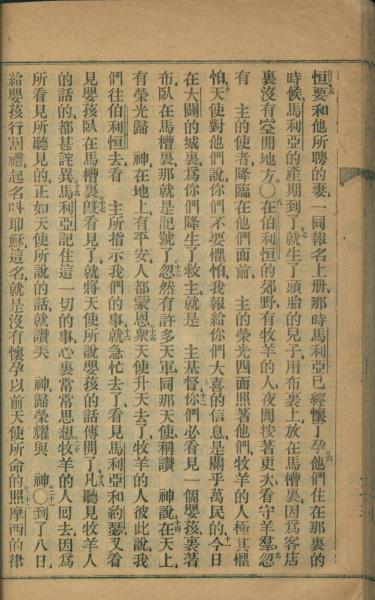 恒要和他所聘的妻一同報名上册那時馬利亞已經懷了孕他們住在那裏的
時候馬利亞的產期到了就生了頭胎的兒子用布裹上放在馬槽裏因爲客店
裏沒有空閒地方〇在伯利恒的郊野有牧羊的人夜間按著更次看守羊羣忽
有　主的使者降臨在他們面前　主的榮光四面照著他們牧羊的人極其懼
怕天使對他們說你們不要懼怕我報給你們大喜的信息是關乎萬民的今日
在大闢的城裏爲你們降生了救主就是　主基督你們必看見一個嬰孩裹著
布臥在馬槽裏那就是記號了忽然有許多天軍同那天使稱讚　神說在天上
有榮光歸　神在地上有平安人都蒙恩衆天使升天去了牧羊的人彼此說我
們往伯利恒去看　主所指示我們的事就急忙去了看見馬利亞和約瑟又看
見嬰孩臥在馬槽裏旣看見了就將天使所說嬰孩的話傳開了凡聽見牧羊人
的話的都甚詫異馬利亞記住這一切的事心裏常常思想牧羊的人回去因爲
所看見所聽見的正如天使所說的話就讚美　神歸榮耀與　神〇到了八日
給嬰孩行割禮起名叫耶穌這名就是沒有懷孕以前天使所命的照摩西的律